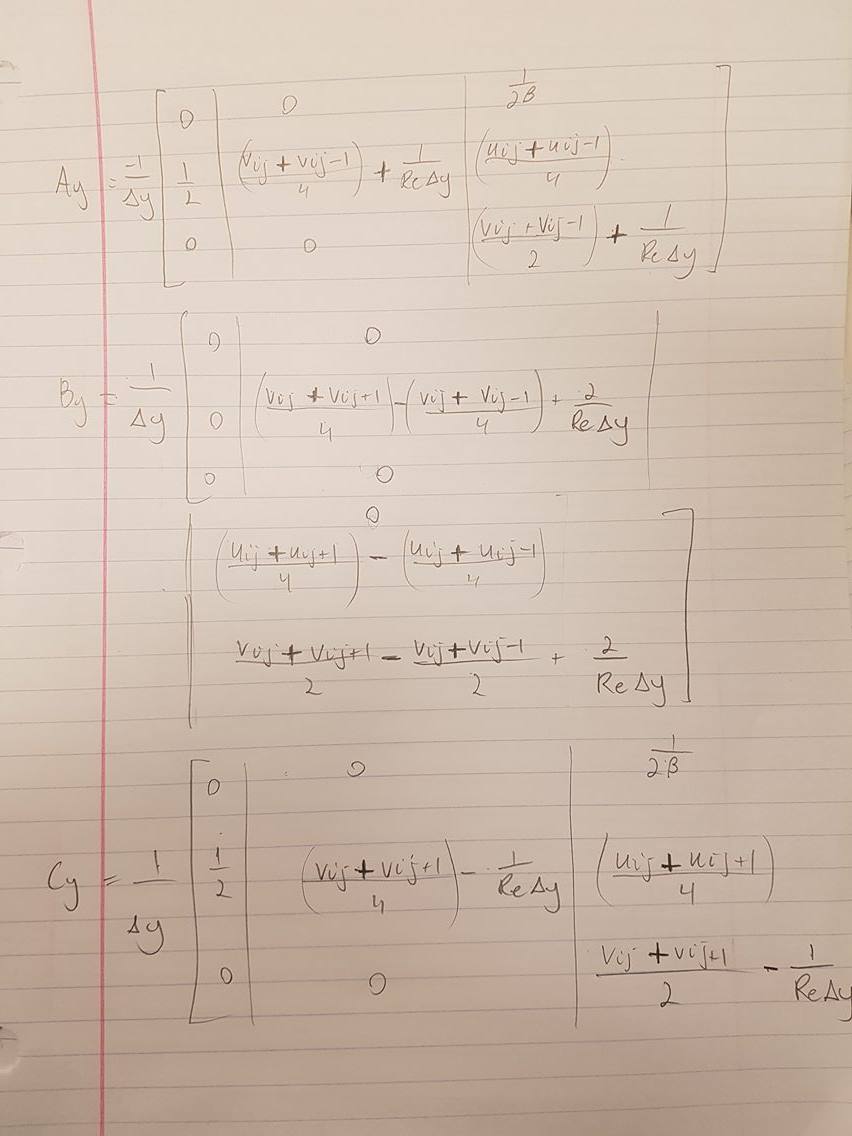 0 0 1/2β
Ay = -1/Δy [ 1/2 | (vij + vij-1 / 4) + 1/ReΔy | (uij + uij-1 / 4) ]
0 0 (vij + vij-1 / 2) + 1/ReΔy
0 0
By = 1/Δy [ 0 | (vij + vij+1 / 4) - (vij + vij-1 / 4) + 2/ReΔy |
0 0
0
(uij + uij+1 / 4) - (uij + uij-1 / 4)
vij + vij+1 / 2 - vij + vij-1 / 2 + 2/ReΔy ]
0 0 1/2β
Cy = 1/Δy [ 1/2 (vij + vij+1 / 4) - 1/ReΔy | (uij + uij+1 / 4)
0 0 vij + vij+1 / 2 - 1/ReΔy